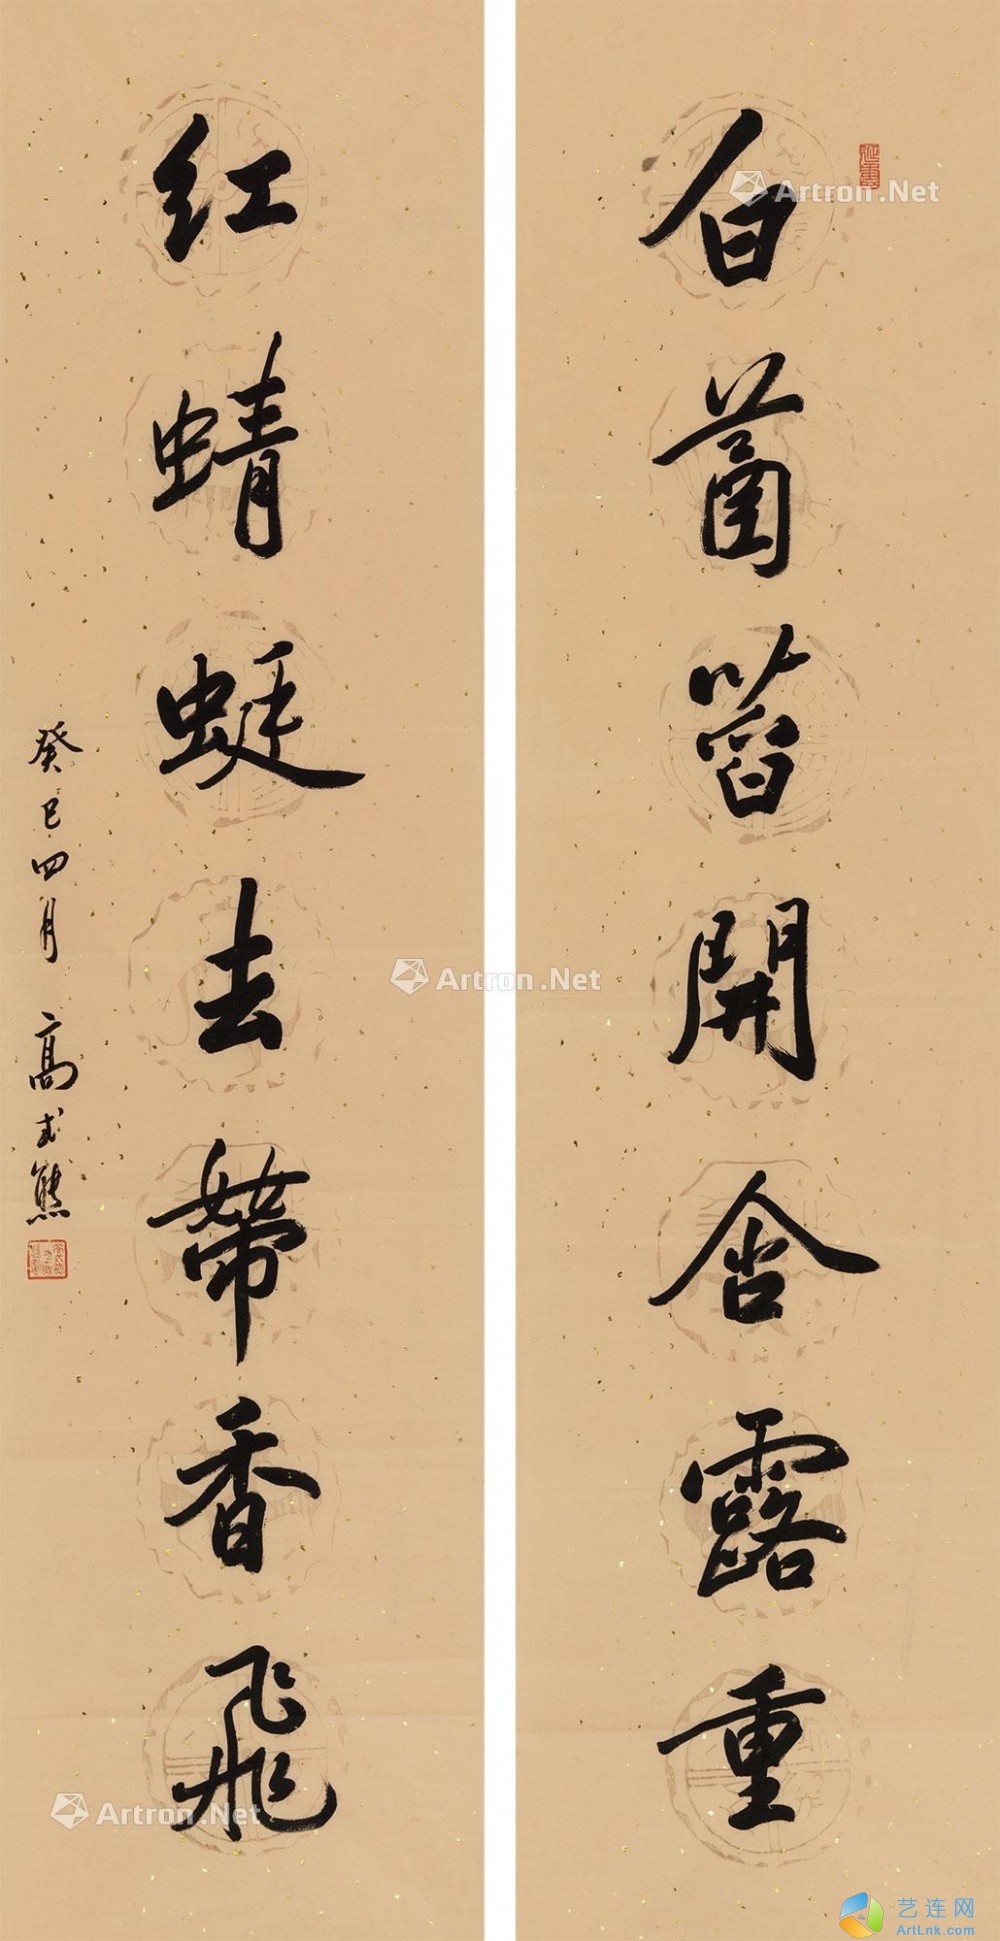 白菡萏開含露重
红蜻蜓去帶香飛
癸巳四月 高式熊
Artron.Net
Artron.Net
Artron.Net
艺连网
ArtLnk.com